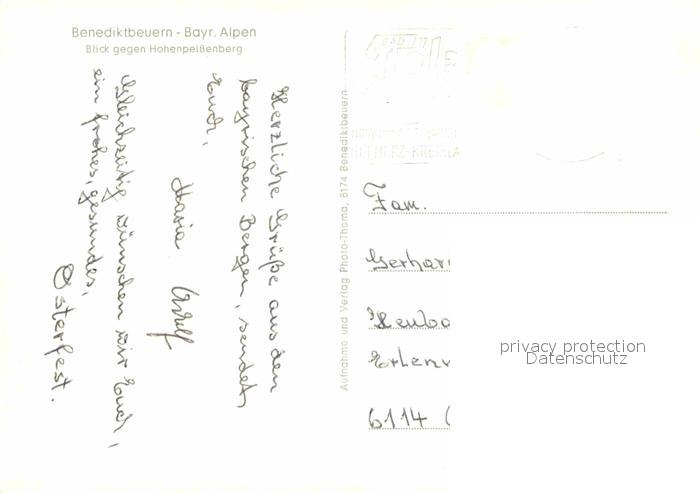 Benediktbeuern - Bayr. Alpen
Blick gegen Hohenpeißenberg
Herzliche Grüße aus den
bayrischen Bergen, sendet
Euch,
Maria
Gleichzeitig wünschen wir Euch,
ein frohes, gesundes,
Osterfest.
Aufnahme und Verlag Photo-Thoma, 8174 Benediktbeuern
BAD
HERZ-KREISLA
Fam.
Gerhar
Neubo
Erlen
6114
privacy protection
Datenschutz